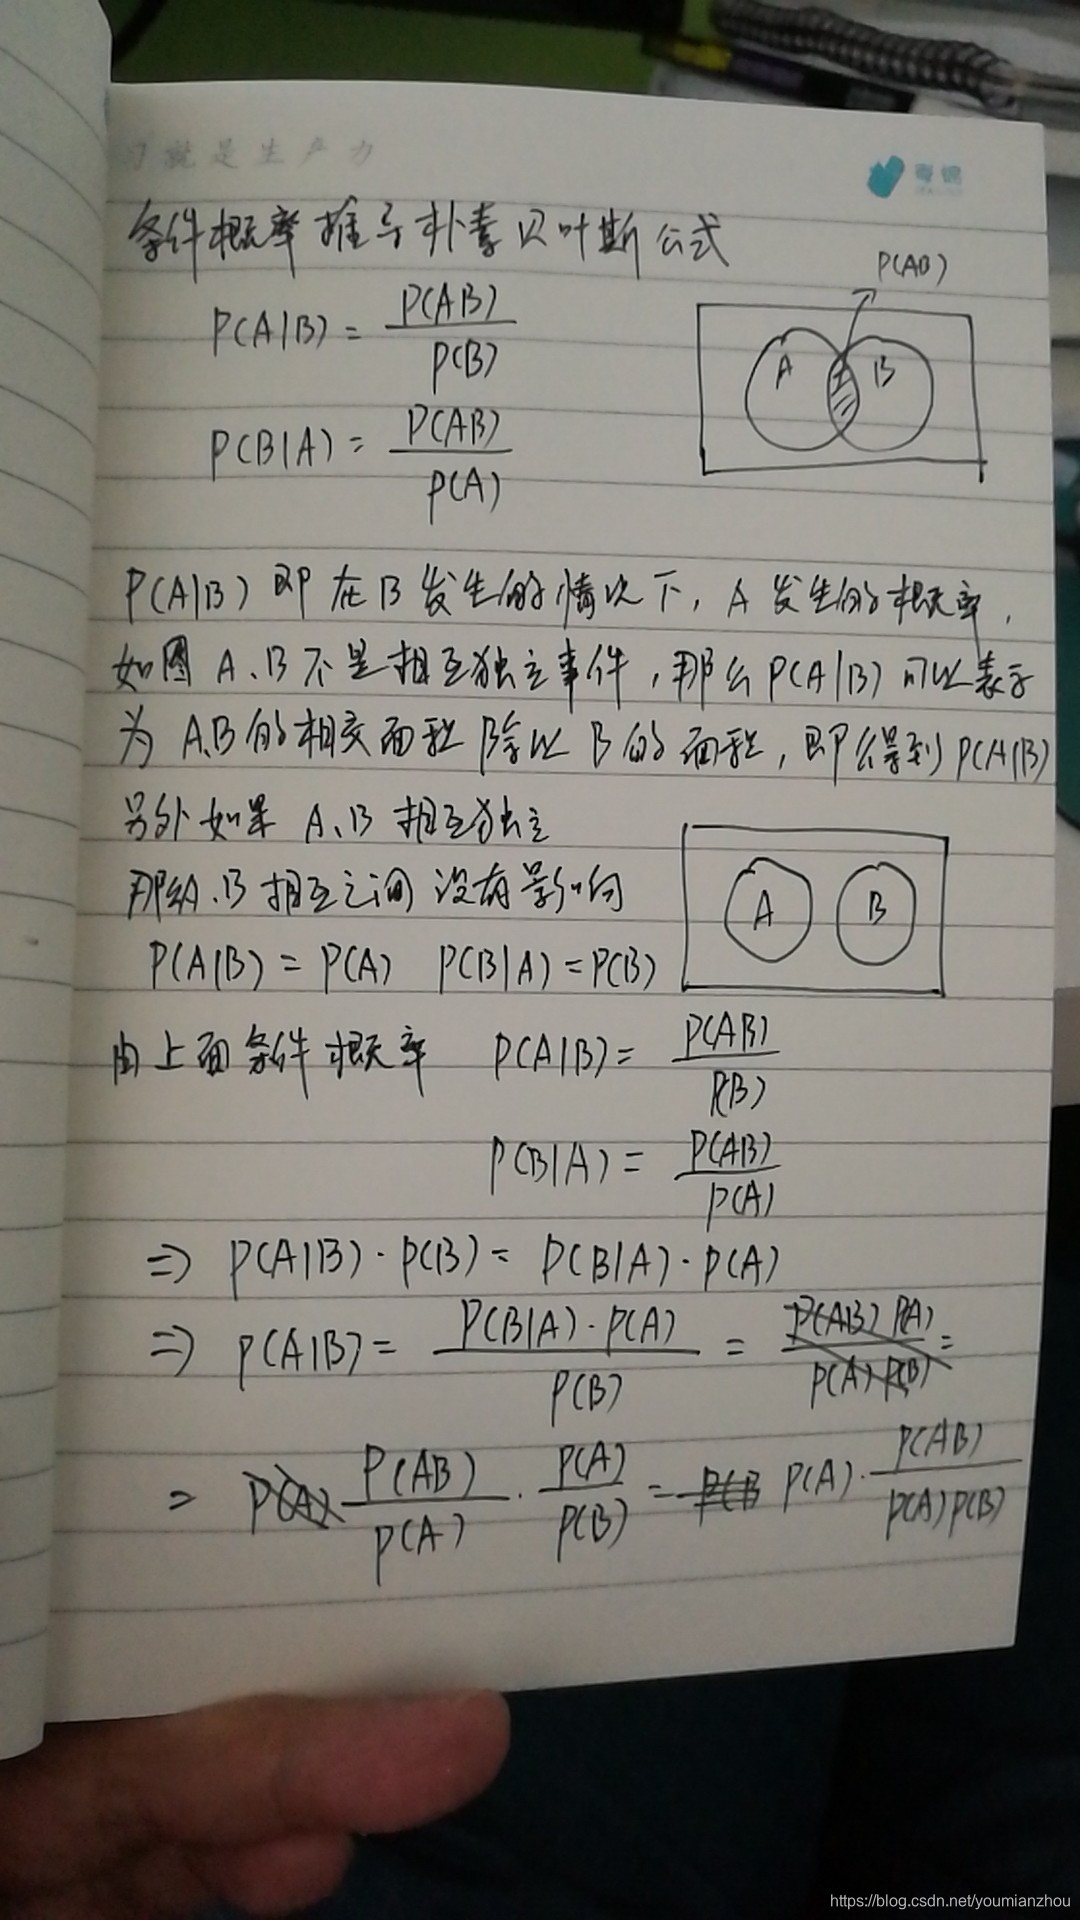 习就是生产力
条件概率推导朴素贝叶斯公式
P(AB)
P(A|B) = P(AB) / P(B)
A B
P(B|A) = P(AB) / P(A)
P(A|B) 即在B发生的情况下, A 发生的概率,
如图 A、B 不是相互独立事件, 那么 P(A|B) 可以表示
为 A、B的相交面积 除以 B 的面积, 即会得到 P(A|B)
另外如果 A、B 相互独立
那么A、B 相互之间 没有影响
A B
P(A|B) = P(A) P(B|A) = P(B)
由上面条件概率 P(A|B) = P(AB) / P(B)
P(B|A) = P(AB) / P(A)
⇒ P(A|B) · P(B) = P(B|A) · P(A)
⇒ P(A|B) = P(B|A) · P(A) / P(B) = P(AB) P(A) / P(A) P(B) =
= P(A) P(AB) / P(A) · P(A) / P(B) = P(B P(A) · P(AB) / P(A) P(B)
https://blog.csdn.net/youmianzhou